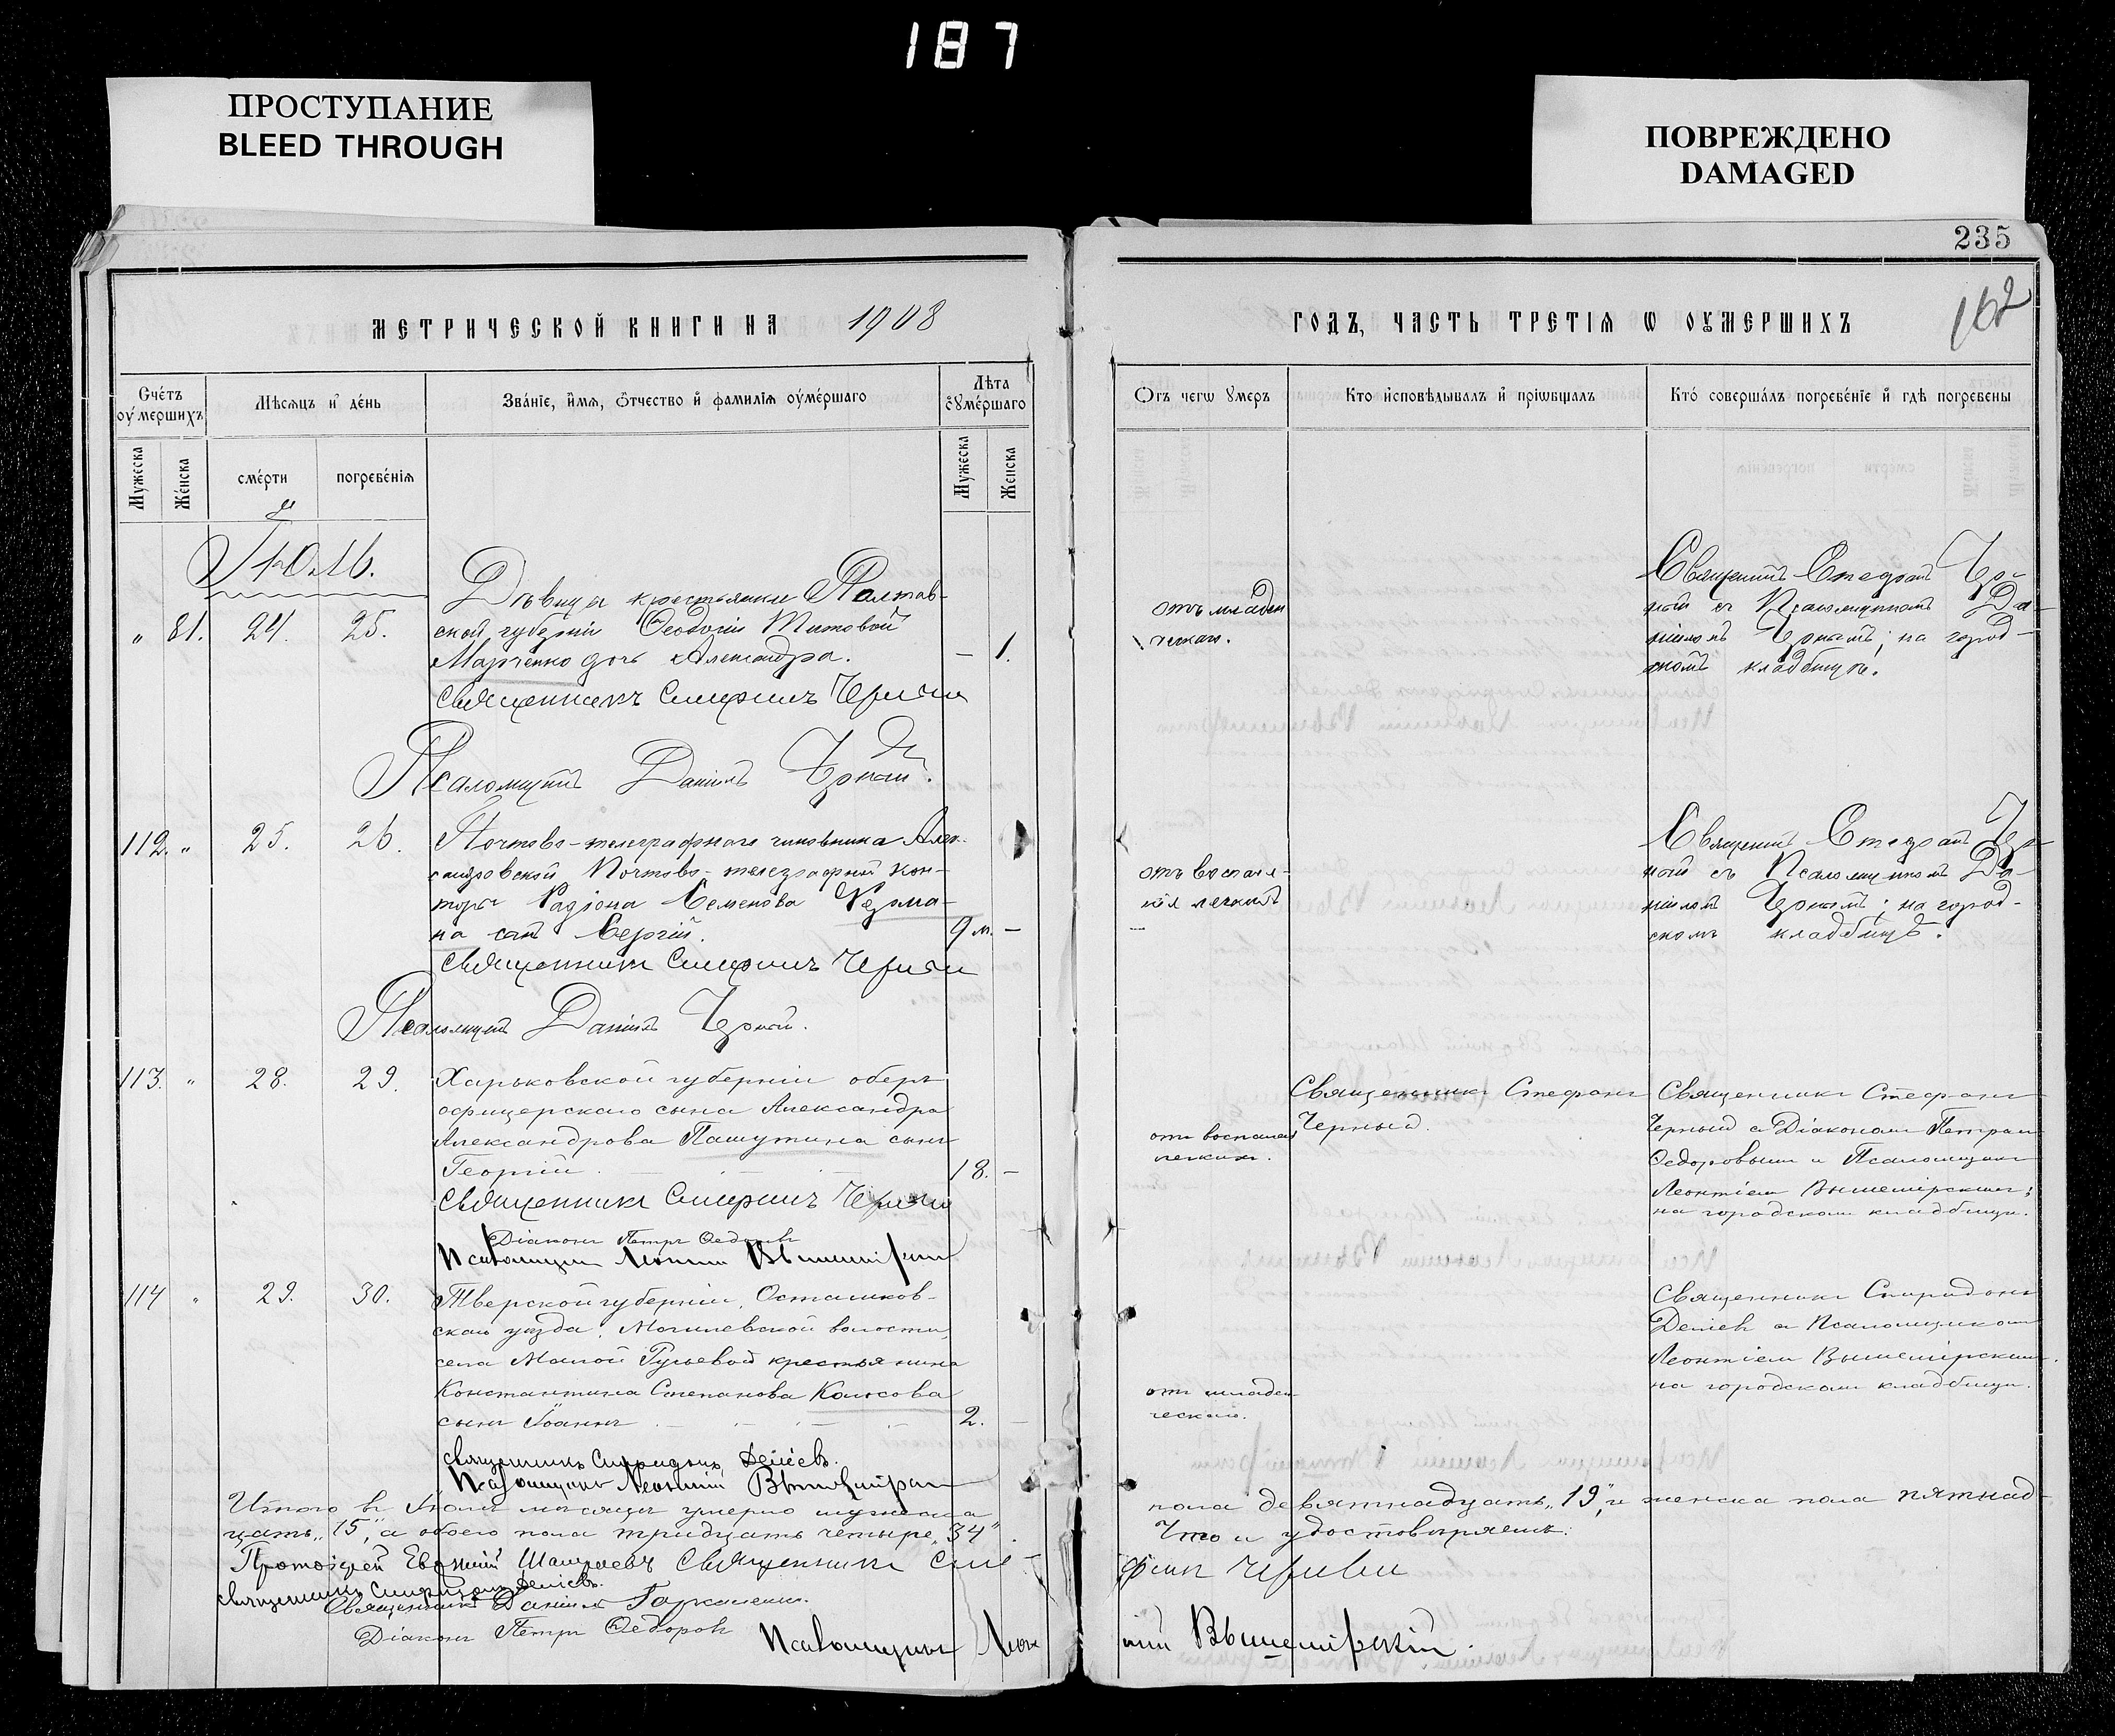 187
ПРОСТУПАНИЕ
BLEED THROUGH
ПОВРЕЖДЕНО
DAMAGED
235
162
МЕТРИЧЕСКОЙ КНИГИ НА 1908
ГОДЪ, ЧАСТЬ ТРЕТІЯ Ѡ ОУМЕРШИХЪ
Счетъ оумершихъ
Мѣсяцъ и день
Званіе, имя, отчество и фамилія оумершаго
Лѣта оумершаго
Отъ чегѡ умеръ
Кто исповѣдывалъ и пріѡбщалъ
Кто совершалъ погребеніе и гдѣ погребены
Мужеска
Женска
смерти
погребенія
Мужеска
Женска
Іюль.
" 81. 24. 25.
Дѣвица крестьянки Полтав-
ской губерніи Ѳеодосіи Титовой
Марченко дочь Александра. — 1.
отъ младен
ческаго.
Священникъ Стефанъ Чер-
ный съ Псаломщикомъ Да-
ніиломъ Чернымъ; на город-
скомъ кладбищѣ.
Священникъ Стефанъ Черный
Псаломщикъ Даніилъ Черный.
112. " 25. 26.
Почтово-телеграфнаго чиновника Алек-
сандровской Почтово-телеграфной кон-
торы Радіона Семенова
на сынъ Сергій. 9 м. —
отъ воспале-
нія легкихъ
Священникъ Стефанъ Чер-
ный съ Псаломщикомъ Да-
ніиломъ Чернымъ; на город-
скомъ кладбищѣ.
Священникъ Стефанъ Черный
Псаломщикъ Даніилъ Черный.
113. " 28. 29.
Харьковской губерніи оберъ
офицерскаго сына Александра
Александрова Пашутина сынъ
Георгій 18. —
отъ воспален.
легкихъ.
Священникъ Стефанъ
Черный.
Священникъ Стефанъ
Черный съ Діакономъ Петромъ
Ѳедоровымъ и Псаломщикомъ
Леонтіемъ Вышемірскимъ;
на городскомъ кладбищѣ.
Священникъ Стефанъ Черный
Діаконъ Петръ Ѳедоровъ
Псаломщикъ Леонтій Вышемірскій
114 " 29. 30.
Тверской губерніи, Осташков-
скаго уѣзда, Могилевской волости,
села Малой Русьевой крестьянина
Константина Степанова Колосова
сынъ Іоаннъ 2. —
отъ младен
ческаго.
Священникъ Спиридонъ
Делієвъ съ Псаломщикомъ
Леонтіемъ Вышемірскимъ.
на городскомъ кладбищѣ.
Священникъ Спиридонъ Делієвъ.
Псаломщикъ Леонтій Вышемірскій
Итого въ Іюлѣ мѣсяцѣ умерло мужеска пола девятнадцать „19", и женска пола пятнад-
цать „15", а обоего пола тридцать четыре „34" Что и удостовѣряемъ:
Протоіерей Евгеній Священникъ Стефанъ Черный
Священникъ Спиридонъ Делієвъ.
Священникъ Даніилъ
Діаконъ Петръ Ѳедоровъ
Псаломщикъ Леонтій Вышемірскій.